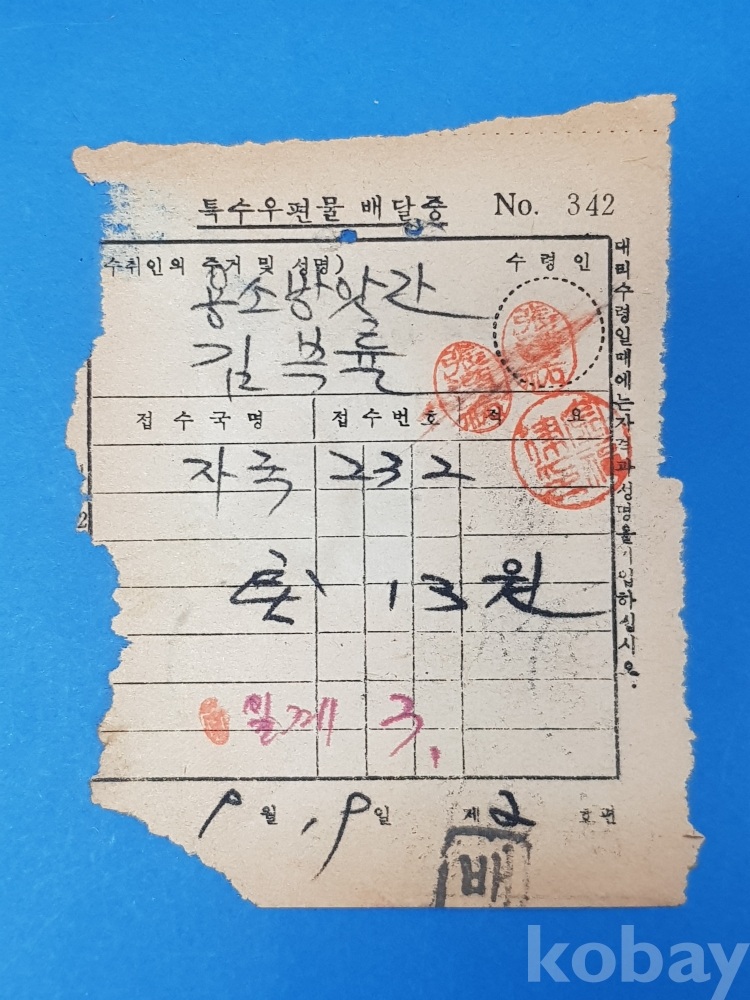 특수우편물 배달증 No. 342
수취인의 주거 및 성명)
수령인
용소방앗간
김복률
접수국명 접수번호 적요
자국 232
13원
9월 19일 제2호편
배
대리수령일때에는자격과성명을기입하십시오.
2
kobay